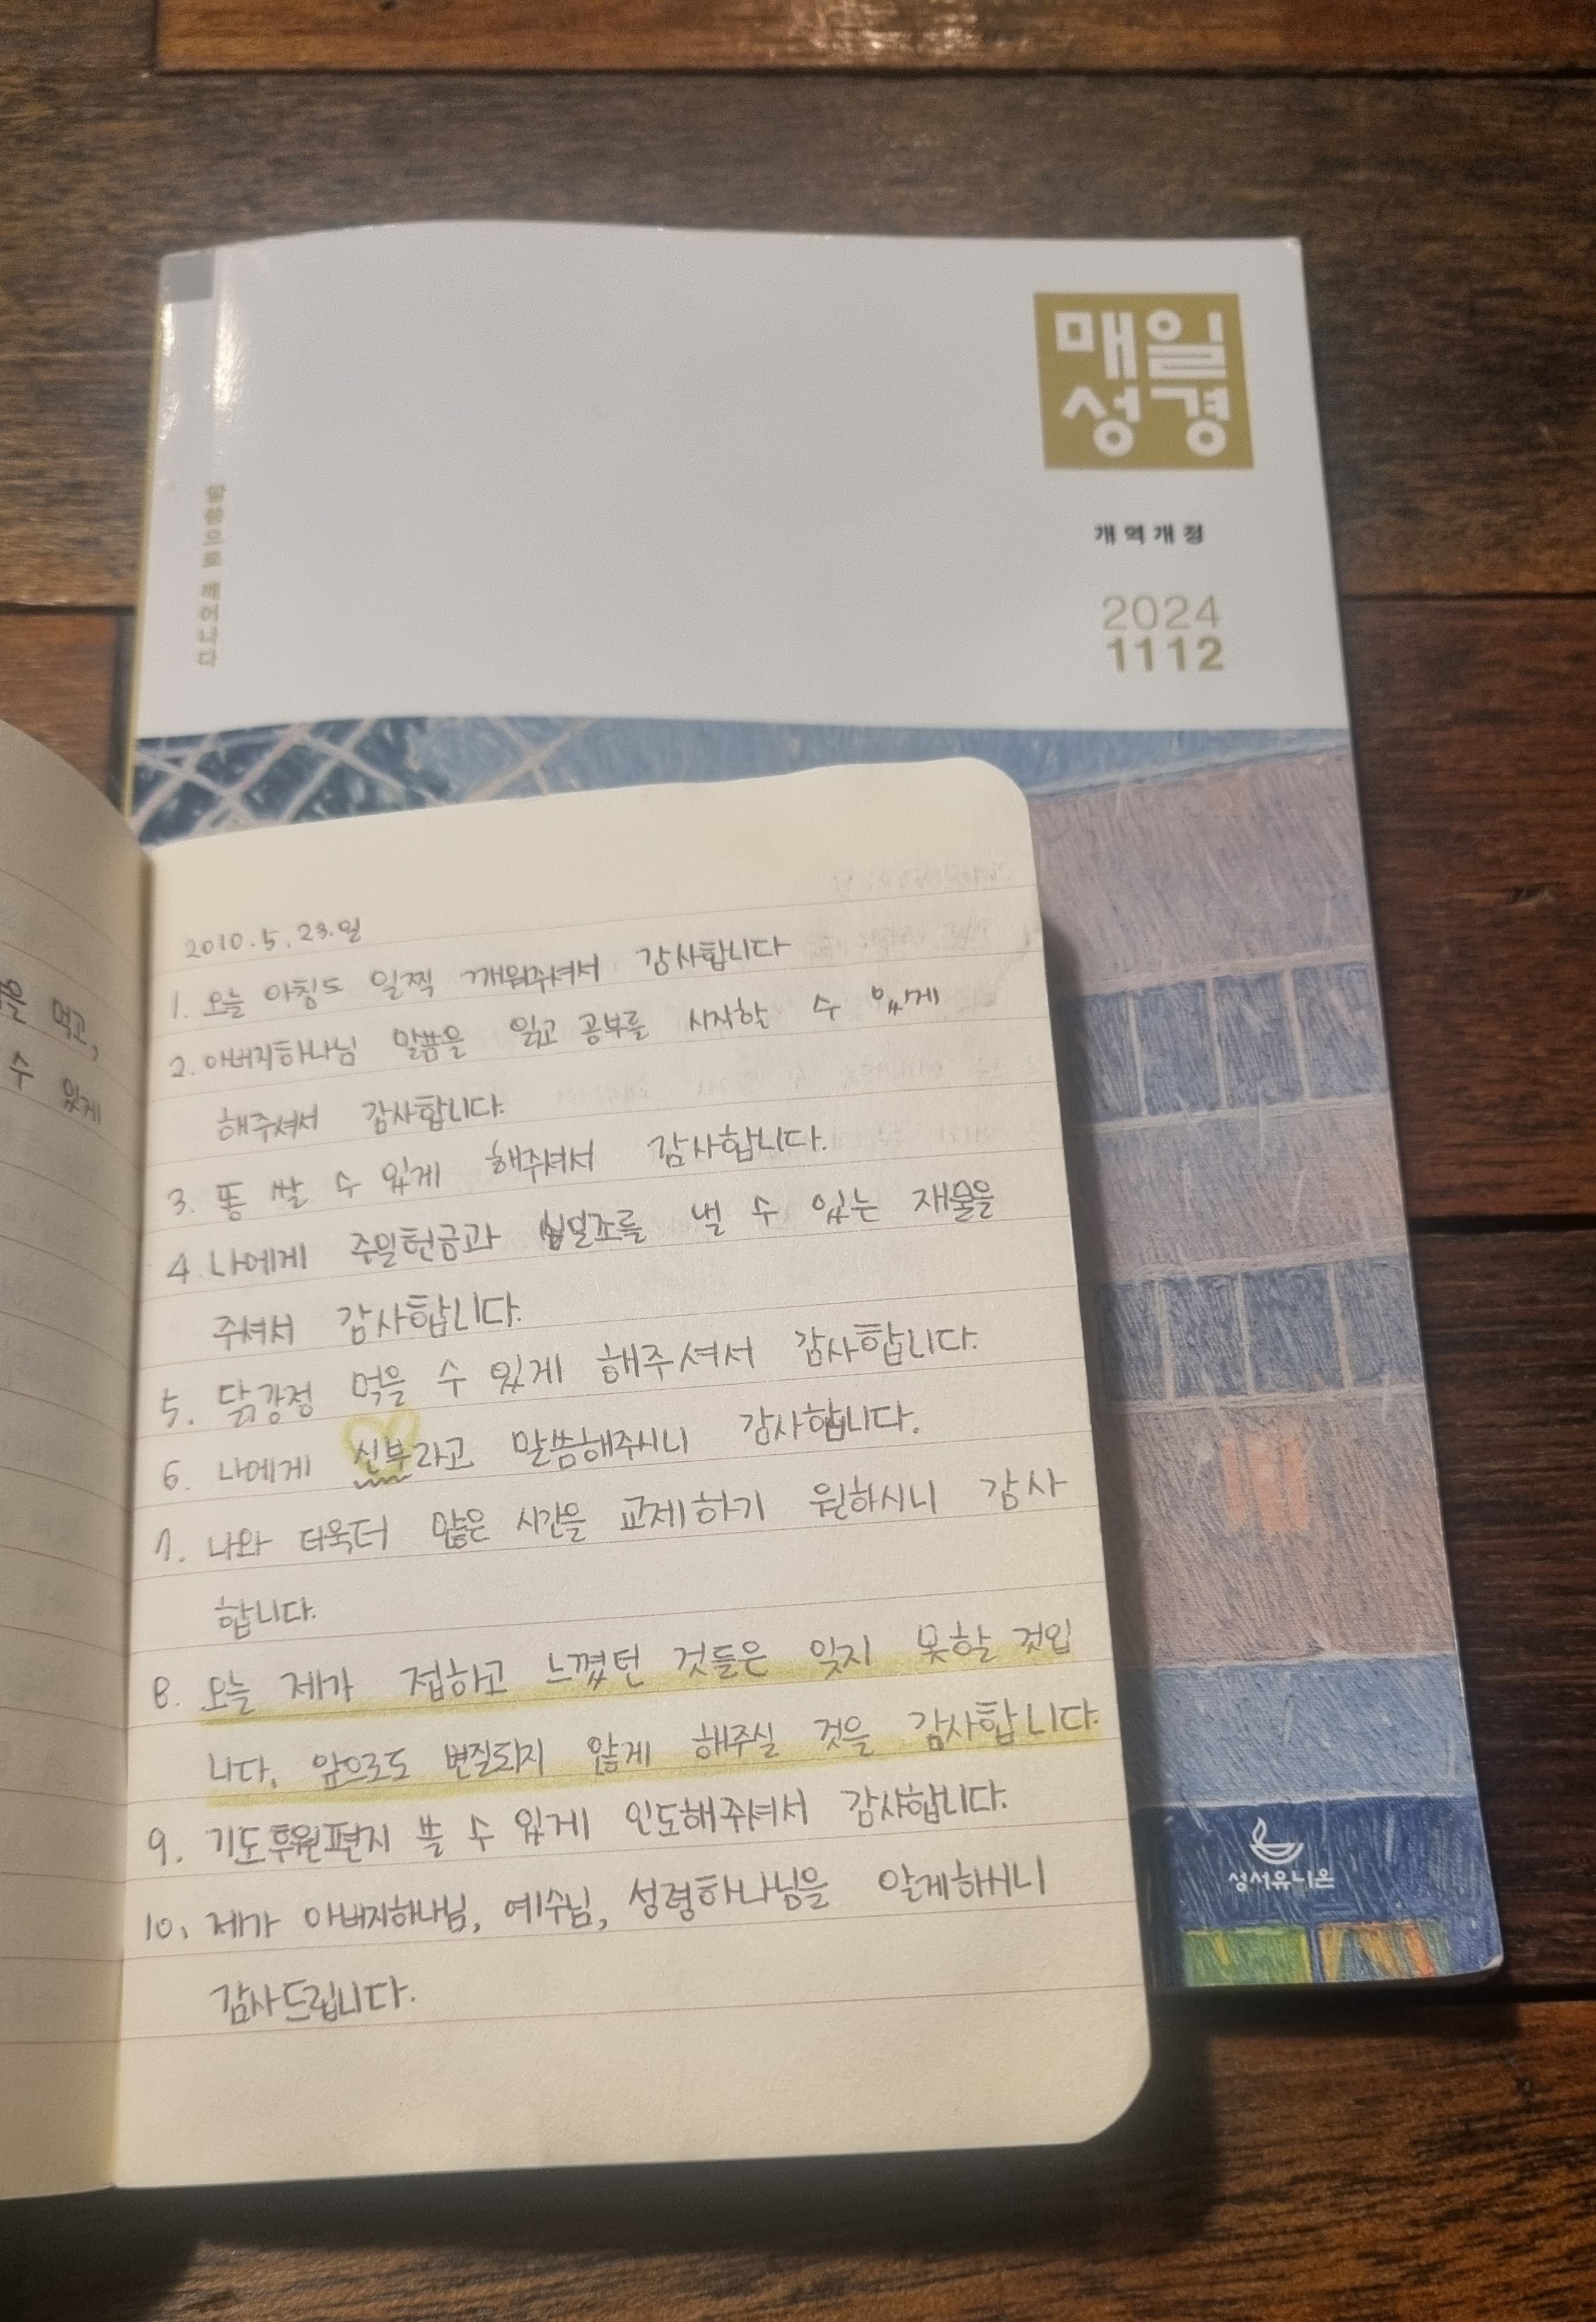 매일
성경
개역개정
2024
1112
말씀으로 깨어나다
을 먹고,
수 있게
2010. 5. 23. 일
1. 오늘 아침도 일찍 깨워주셔서 감사합니다
2. 아버지하나님 말씀을 읽고 공부를 시작할 수 있게
해주셔서 감사합니다.
3. 똥 쌀 수 있게 해주셔서 감사합니다.
4. 나에게 주일헌금과 십일조를 낼 수 있는 재물을
주셔서 감사합니다.
5. 닭강정 먹을 수 있게 해주셔서 감사합니다.
6. 나에게 신부라고 말씀해주시니 감사합니다.
7. 나와 더욱더 많은 시간을 교제하기 원하시니 감사
합니다.
8. 오늘 제가 접하고 느꼈던 것들은 잊지 못할 것입
니다. 앞으로도 변질되지 않게 해주실 것을 감사합니다.
9. 기도후원편지 쓸 수 있게 인도해주셔서 감사합니다.
10. 제가 아버지하나님, 예수님, 성령하나님을 알게하시니
감사드립니다.
성서유니온